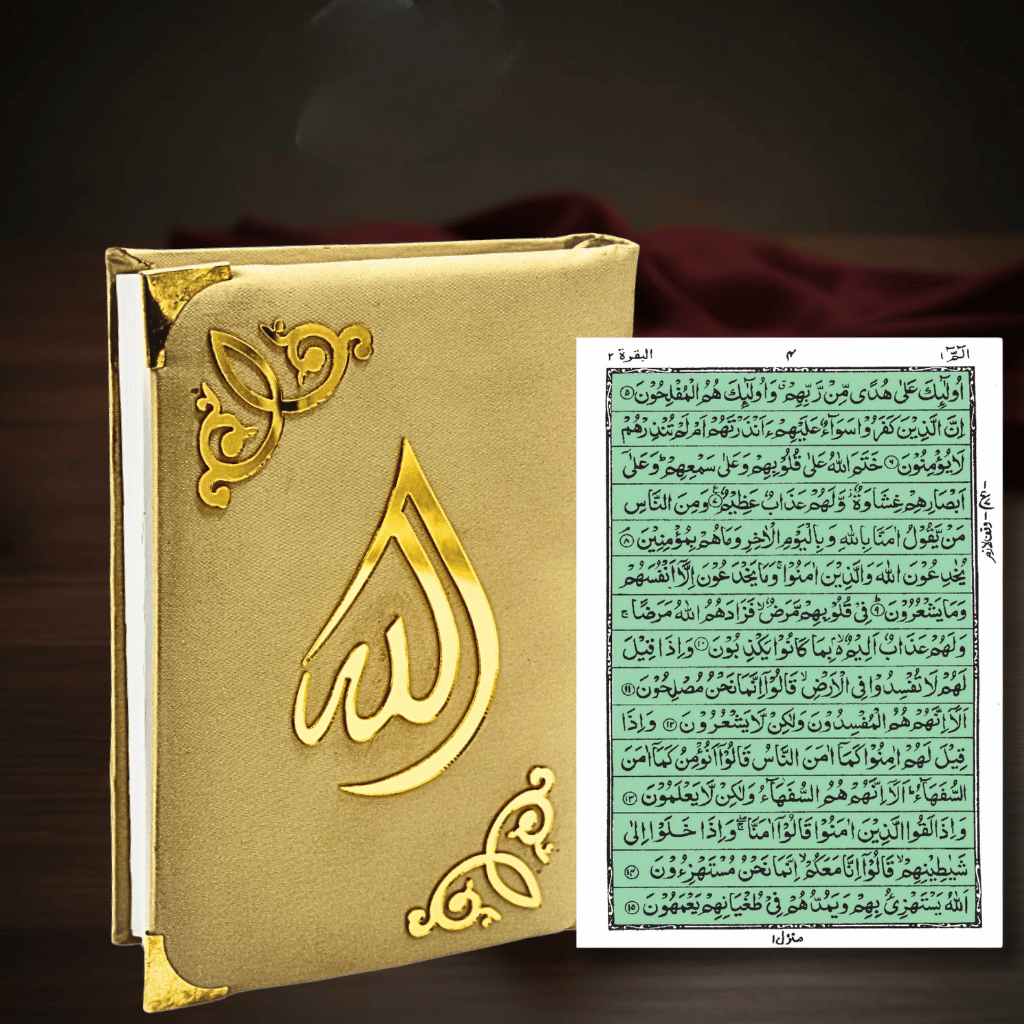 الله
الٓمّٓ ۱
۴
البقرة ۲
اُولٰٓئِكَ عَلٰى هُدًى مِّنْ رَّبِّهِمْ ۗ وَاُولٰٓئِكَ هُمُ الْمُفْلِحُوْنَ ۵
اِنَّ الَّذِيْنَ كَفَرُوْا سَوَآءٌ عَلَيْهِمْ ءَاَنْذَرْتَهُمْ اَمْ لَمْ تُنْذِرْهُمْ
لَا يُؤْمِنُوْنَ ۶ خَتَمَ اللّٰهُ عَلٰى قُلُوْبِهِمْ وَعَلٰى سَمْعِهِمْ ؕ وَعَلٰٓى
اَبْصَارِهِمْ غِشَاوَةٌ ؗ وَّلَهُمْ عَذَابٌ عَظِيْمٌ ۷ وَمِنَ النَّاسِ
مَنْ يَّقُوْلُ اٰمَنَّا بِاللّٰهِ وَبِالْيَوْمِ الْاٰخِرِ وَمَا هُمْ بِمُؤْمِنِيْنَ ۸
يُخٰدِعُوْنَ اللّٰهَ وَالَّذِيْنَ اٰمَنُوْا ۚ وَمَا يَخْدَعُوْنَ اِلَّآ اَنْفُسَهُمْ
وَمَا يَشْعُرُوْنَ ۹ فِيْ قُلُوْبِهِمْ مَّرَضٌ ۙ فَزَادَهُمُ اللّٰهُ مَرَضًا ۚ
وَلَهُمْ عَذَابٌ اَلِيْمٌ ۙ بِمَا كَانُوْا يَكْذِبُوْنَ ۱۰ وَاِذَا قِيْلَ
لَهُمْ لَا تُفْسِدُوْا فِى الْاَرْضِ ۙ قَالُوْٓا اِنَّمَا نَحْنُ مُصْلِحُوْنَ ۱۱
اَلَآ اِنَّهُمْ هُمُ الْمُفْسِدُوْنَ وَلٰكِنْ لَّا يَشْعُرُوْنَ ۱۲ وَاِذَا
قِيْلَ لَهُمْ اٰمِنُوْا كَمَآ اٰمَنَ النَّاسُ قَالُوْٓا اَنُؤْمِنُ كَمَآ اٰمَنَ
السُّفَهَآءُ ؕ اَلَآ اِنَّهُمْ هُمُ السُّفَهَآءُ وَلٰكِنْ لَّا يَعْلَمُوْنَ ۱۳
وَاِذَا لَقُوا الَّذِيْنَ اٰمَنُوْا قَالُوْٓا اٰمَنَّا ۚۖ وَاِذَا خَلَوْا اِلٰى
شَيٰطِيْنِهِمْ ۙ قَالُوْٓا اِنَّا مَعَكُمْ ۙ اِنَّمَا نَحْنُ مُسْتَهْزِءُوْنَ ۱۴
اَللّٰهُ يَسْتَهْزِئُ بِهِمْ وَيَمُدُّهُمْ فِيْ طُغْيَانِهِمْ يَعْمَهُوْنَ ۱۵
وقف لازم
منزل ۱